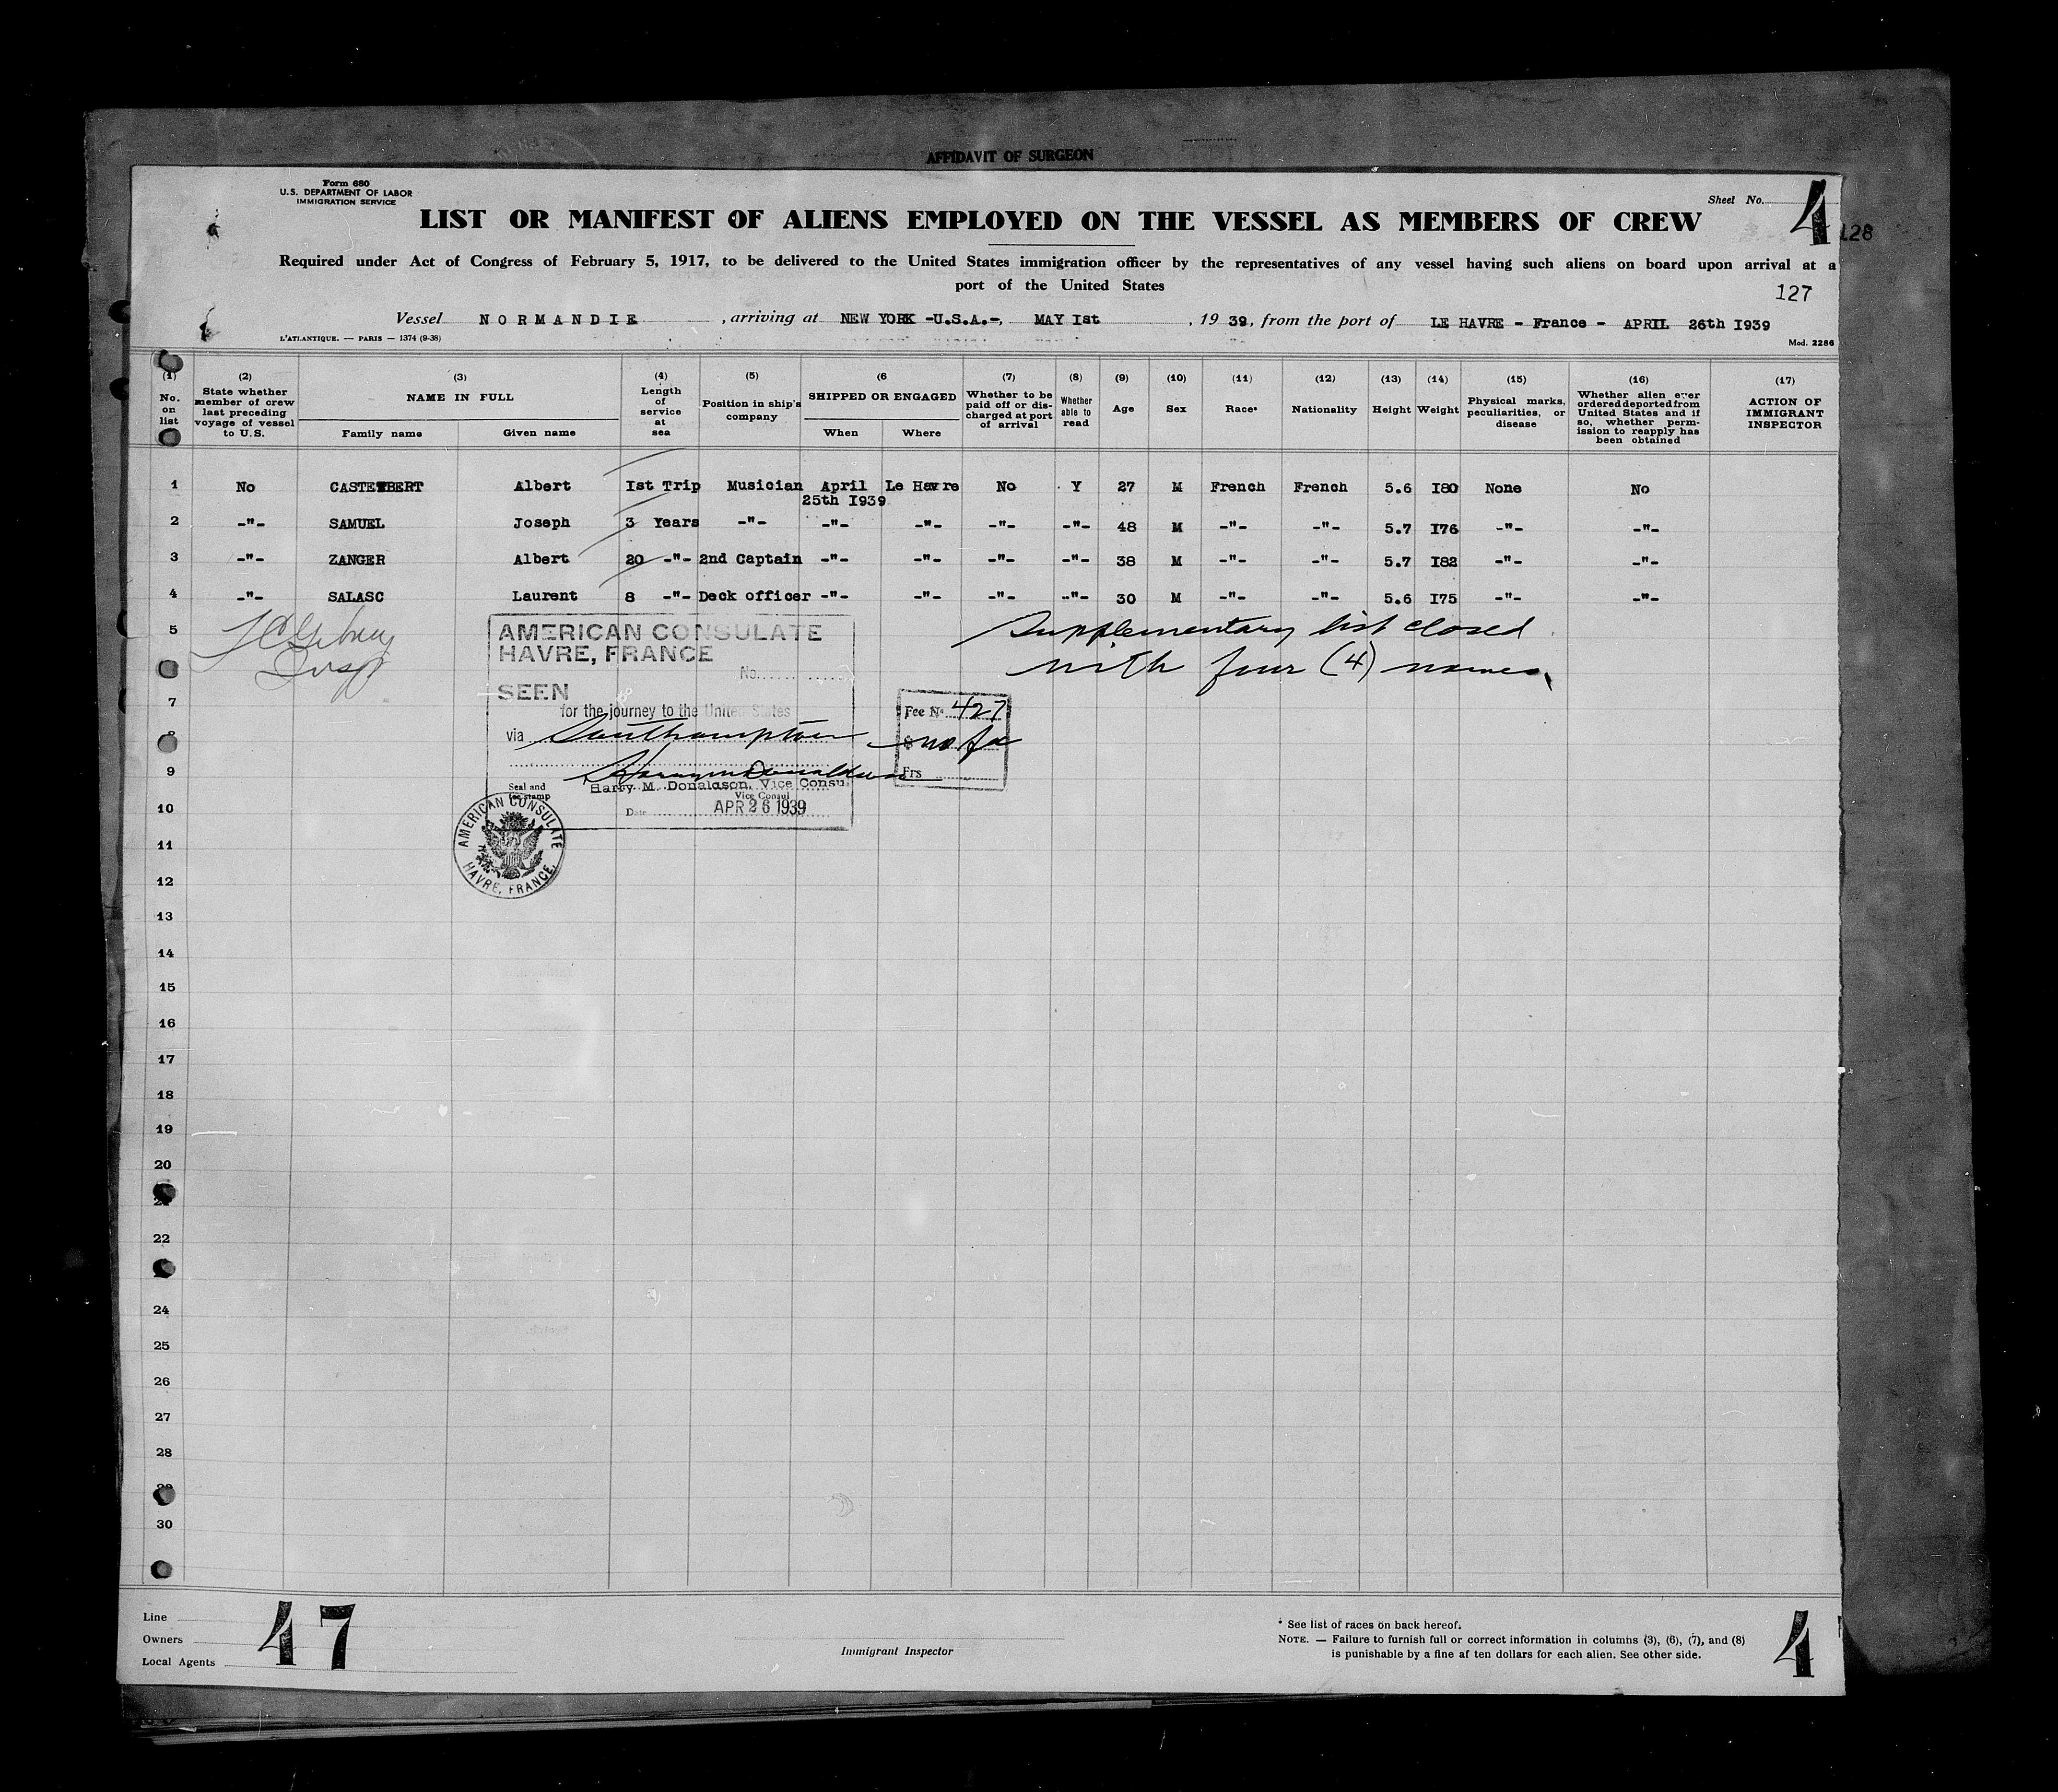 AFFIDAVIT OF SURGEON
Form 680
U.S. DEPARTMENT OF LABOR
IMMIGRATION SERVICE
Sheet No. 4
LIST OR MANIFEST OF ALIENS EMPLOYED ON THE VESSEL AS MEMBERS OF CREW
128
Required under Act of Congress of February 5, 1917, to be delivered to the United States immigration officer by the representatives of any vessel having such aliens on board upon arrival at a
port of the United States
127
Vessel NORMANDIE, arriving at NEW YORK -U.S.A.-, MAY Ist, 19 39, from the port of LE HAVRE - France - APRIL 26th I939
L'ATLANTIQUE. — PARIS — 1374 (9-38)
Mod. 2286
(1) No. on list
(2) State whether member of crew last preceding voyage of vessel to U.S.
(3) NAME IN FULL Family name Given name
(4) Length of service at sea
(5) Position in ship's company
(6 SHIPPED OR ENGAGED When Where
(7) Whether to be paid off or discharged at port of arrival
(8) Whether able to read
(9) Age
(10) Sex
(11) Race*
(12) Nationality
(13) Height
(14) Weight
(15) Physical marks, peculiarities, or disease
(16) Whether alien ever ordered deported from United States and if so, whether permission to reapply has been obtained
(17) ACTION OF IMMIGRANT INSPECTOR
1 No Albert Ist Trip Musician April 25th I939 Le Havre No Y 27 M French French 5.6 I80 None No
2 -"- SAMUEL Joseph 3 Years -"- -"- -"- -"- -"- 48 M -"- -"- 5.7 I76 -"- -"-
3 -"- ZANGER Albert 20 -"- 2nd Captain -"- -"- -"- -"- 38 M -"- -"- 5.7 I82 -"- -"-
4 -"- SALASC Laurent 8 -"- Deck officer -"- -"- -"- -"- 30 M -"- -"- 5.6 I75 -"- -"-
5
Supplementary list closed
with four (4) names.
AMERICAN CONSULATE
HAVRE, FRANCE
No.
SEEN
for the journey to the United States
via Southampton
Harry M. Donaldson
Harry M. Donaldson, Vice Consul
Vice Consul
Seal and
fee stamp
Date APR 26 1939
Fee No 427
$ no fee
Frs
AMERICAN CONSULATE
HAVRE, FRANCE.
7
8
9
10
11
12
13
14
15
16
17
18
19
20
21
22
24
25
26
27
28
29
30
Line
Owners
Local Agents
47
Immigrant Inspector
* See list of races on back hereof.
NOTE. — Failure to furnish full or correct information in columns (3), (6), (7), and (8)
is punishable by a fine af ten dollars for each alien. See other side.
4